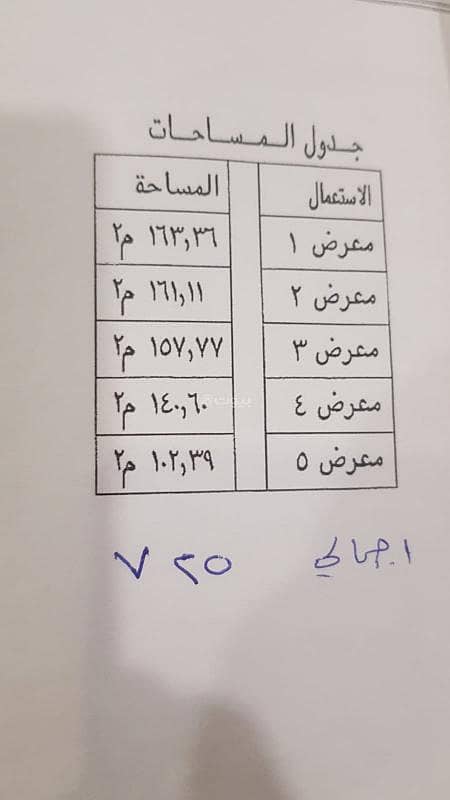 جدول المساحات
الاستعمال المساحة
معرض ١ ١٦٣,٣٦ م٢
معرض ٢ ١٦١,١١ م٢
معرض ٣ ١٥٧,٧٧ م٢
معرض ٤ ١٤٠,٦٠ م٢
معرض ٥ ١٠٢,٣٩ م٢
اجمالي ٧٢٥
بيوت